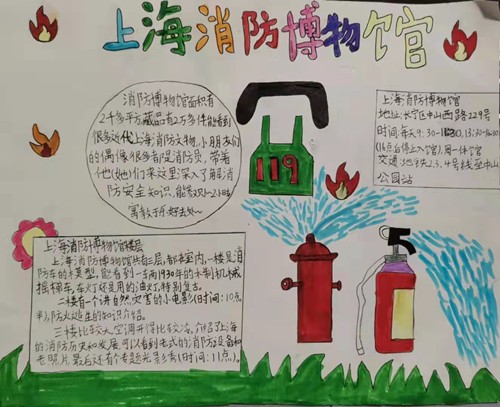 上海消防博物馆
消防博物馆面积有
2千多平方藏品有2万多件能看到
很多近代上海消防文物,小朋友们
的偶像很多都是消防员,带着
他(她)们来这里深入了解消
防安全知识,能教
寓教于乐好去处~
119
上海消防博物馆
地址:长宁区中山西路229号
时间:每天9:30-11:30,13:30-16:00
后停止入馆),周一休馆
交通:地铁2.3.4号线至中山
公园站
上海消防博物馆的楼层
上海消防博物馆共有三层,都在室内,一楼是消
防车的模型,能看到一车间1930年的木制机械
摇梯车,车灯还是用的油灯,特别复古。
二楼有一个讲自然灾害的小电影(时间:10点
半),防火逃生的知识介绍。
三楼比较大空调开得比较冷,介绍了上海
的消防历史和发展,可以看到老式的消防设备和
老照片,最后还有个专题光影秀(时间:11点)。